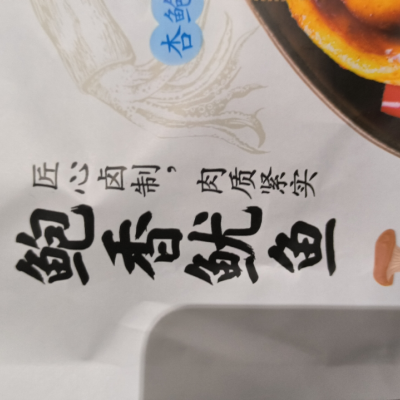 杏鲍
匠心卤制，肉质紧实
鲍香鱿鱼